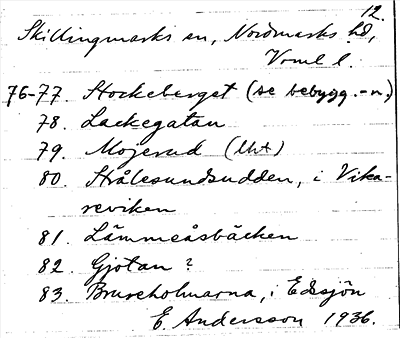 12.
Skillingmarks sn, Nordmarks hd,
Vrml l.
76-77. Stockeberget (se bebygg.-n.)
78. Lackegatan
79. Mojerud (Uht)
80. Strålesundsudden, i Vika-
reviken
81. Lämmeåsbäcken
82. Gjötan?
83. Brureholmarna, i Edsjön
E. Andersson 1936.